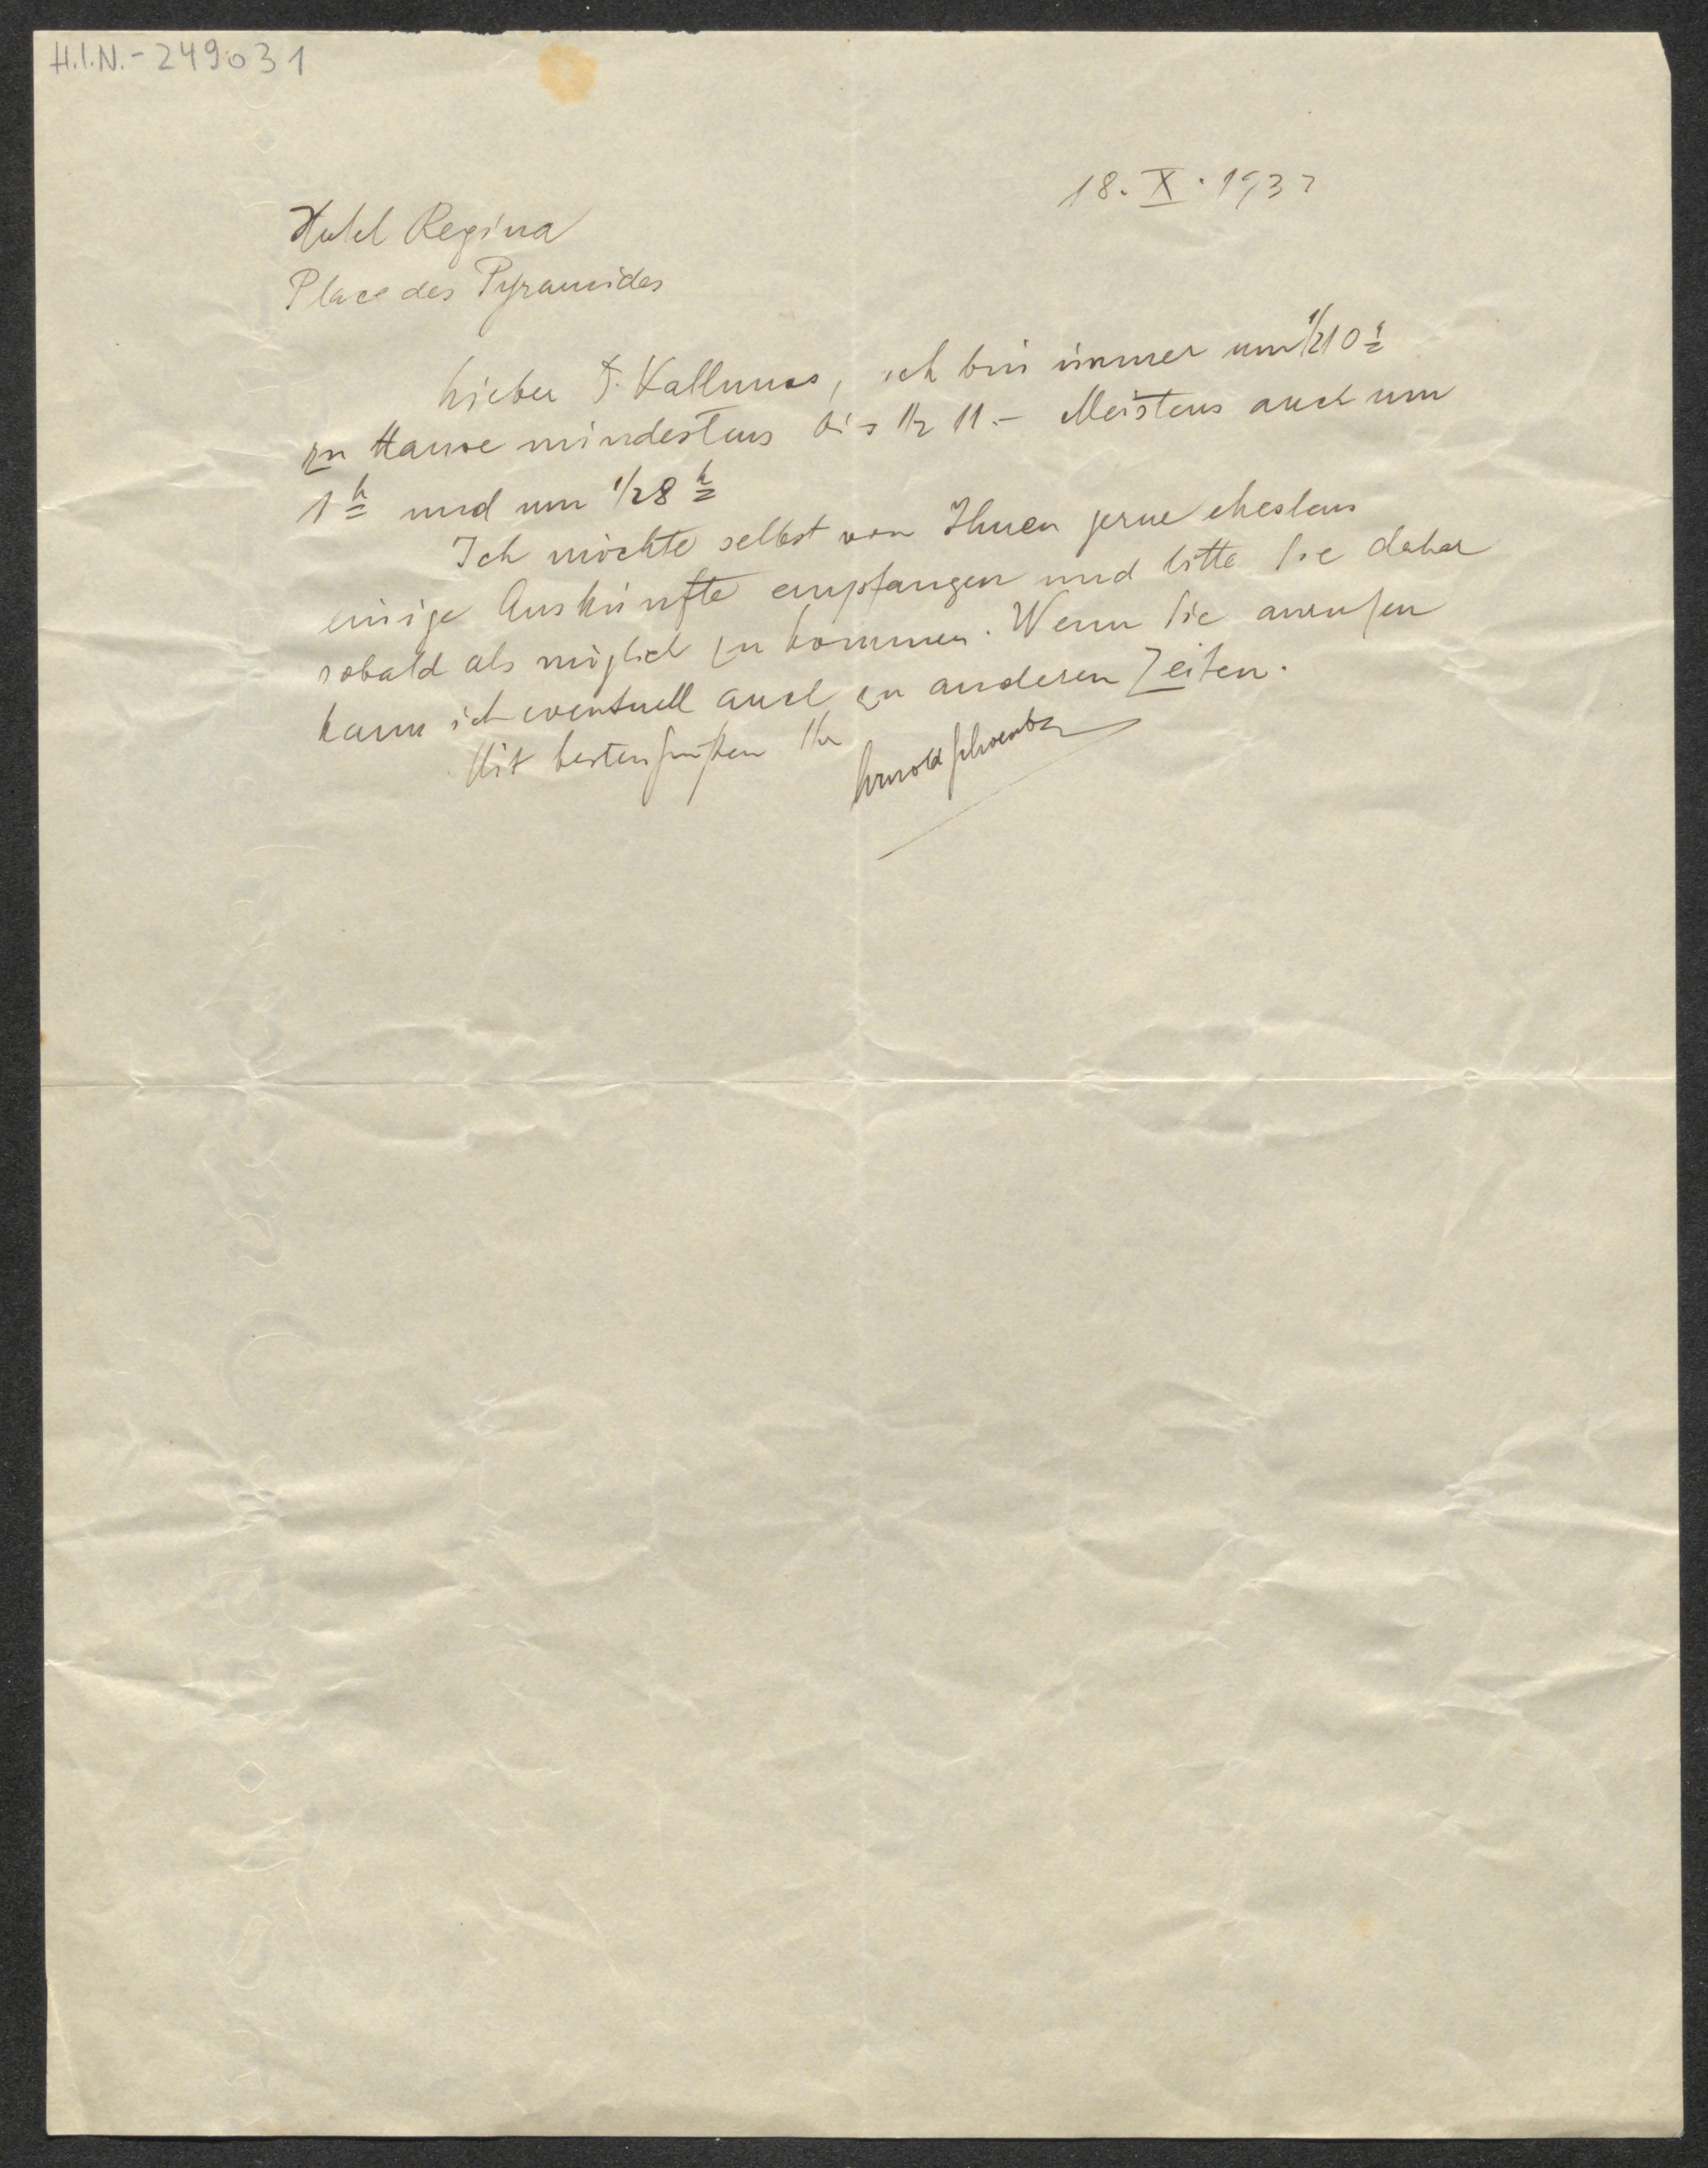 H.I.N.-249031
18. X. 193
Hotel Regina
Place des Pyramides
Lieber ich bin immer um 1/210 h
zu Hause mindestens bis 1/2 11.– Meistens auch um
1 h und um 1/28 h
Ich möchte selbst von Ihnen gerne ehestens
einige Auskünfte empfangen und bitte Sie daher
sobald als möglich zu kommen. Wenn Sie anrufen
kann ich eventuell auch zu anderen Zeiten.
Mit besten Grüßen Ihr
Arnold Schoenberg